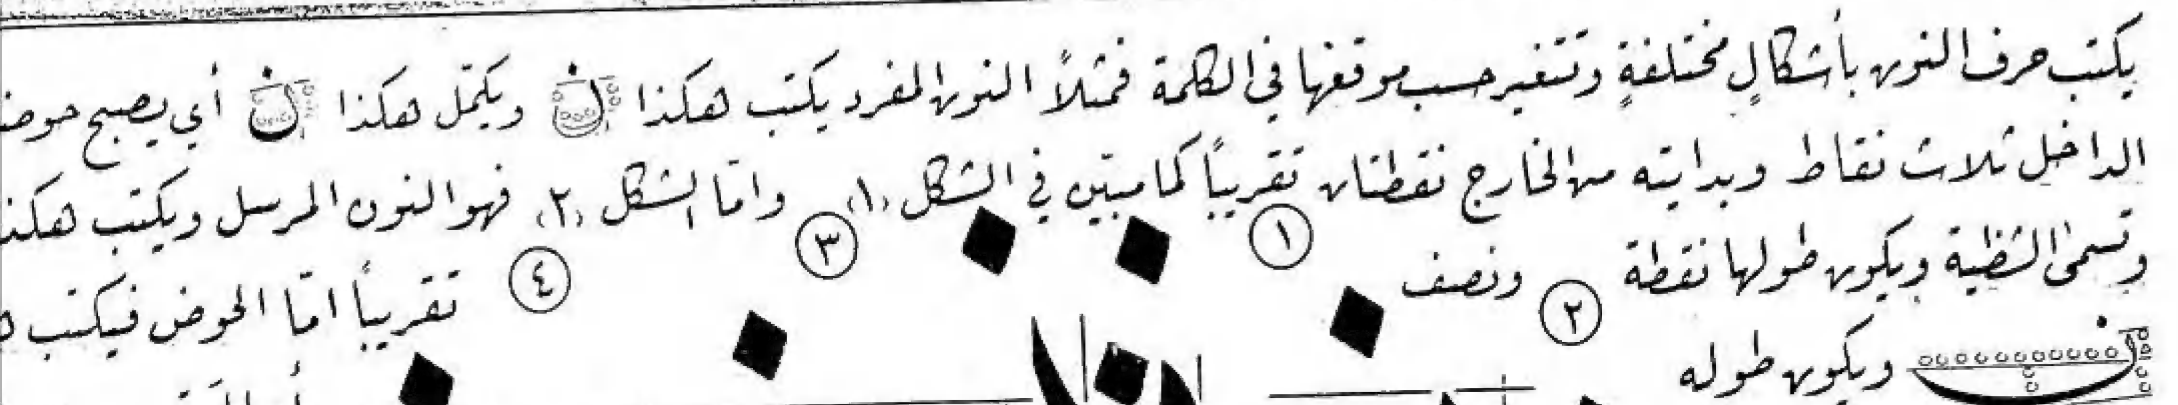 يكتب حرف النون بأشكالٍ مختلفةٍ وتتغير حسب موقعها في الكلمة فمثلاً النون المفرد يكتب هكذا ن ويكمّل هكذا ن أي يصبح حوض
الداخل ثلاث نقاط وبدايته من الخارج نقطتان تقريباً كما مبيّن في الشكل (١) وامّا الشكل (٢) فهو النون المرسل ويكتب
وتسمىٰ الشظية ويكون طولها نقطة ونصف
١ ٣
٢ ٤ تقريباً امّا الحوض فيكتب
ن ويكون طوله